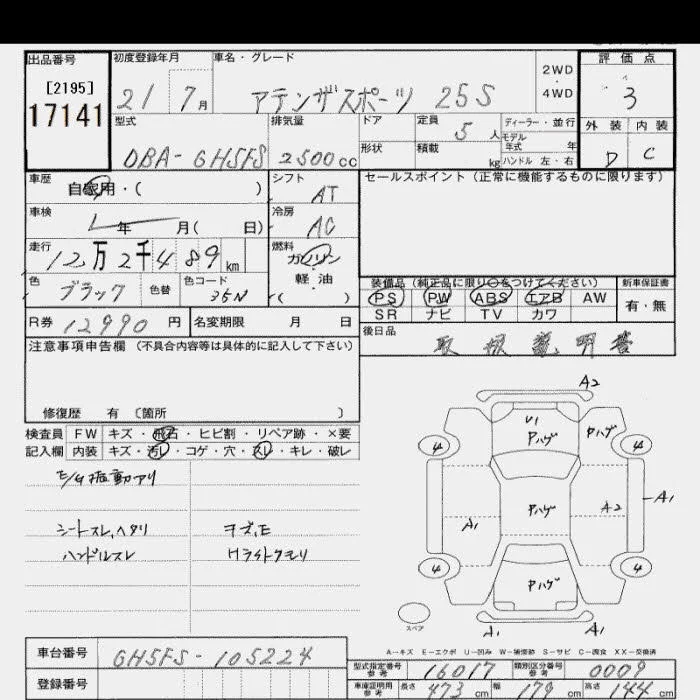 出品番号 初度登録年月 車名・グレード 評価点
[2195]
17141
21 7月 アテンザスポーツ 25S 2WD・4WD 3
型式 排気量 ドア 定員 5人 ディーラー・並行 外装 内装
モデル年式 年
DBA-GH5FS 2500cc 形状 積載 kg ハンドル 左・右 D C
車歴 自家用・( ) シフト AT セールスポイント(正常に機能するものに限ります)
車検 年 月( 日) 冷房 AC
走行 12万2千489km 燃料 ガソリン
軽油
( )
色 ブラック 色替 色コード 35N
装備品(純正品に限り○をつけてください) 新車保証書
PS PW ABS エアB AW 有・無
SR ナビ TV カワ
R券 12990円 名変期限 月 日 後日品 取扱説明書
注意事項申告欄(不具合内容等は具体的に記入して下さい)
修復歴 有〔箇所 〕
検査員 FW キズ・飛石・ヒビ割・リペア跡・×要
記入欄 内装 キズ・汚レ・コゲ・穴・スレ・キレ・破レ
E/G振動アリ
シートスレ、ヘタリ
ハンドルスレ キズ、E
Hライトクモリ
A2
U1
Pハゲ Pハゲ
4 4
Pハゲ A2 A1
A1
4 4
Pハゲ
スペア A1 A1
A-キズ E-エクボ U-凹み W-補修跡 S-サビ C-腐食 XX-交換済
車台番号 GH5FS-105224
登録番号
型式指定番号 参考 16017 類別区分番号 参考 0009
車庫証明用 参考 長さ 473cm 幅 179cm 高さ 144cm